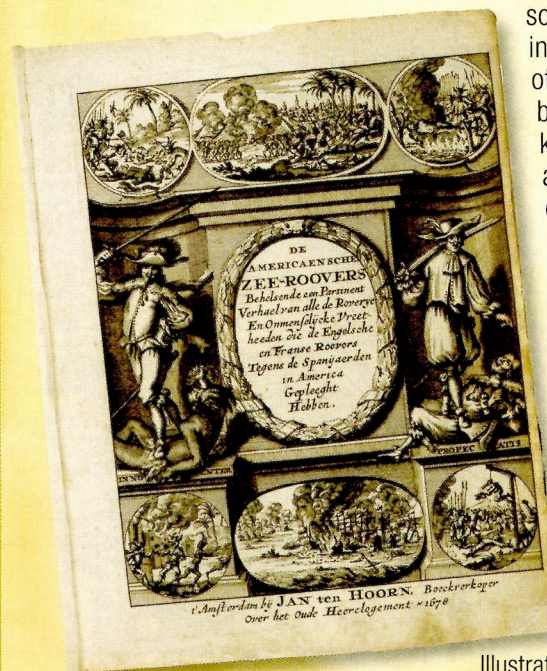 sc
in
of
b
k
a
DE
AMERICAENSCHE
ZEE-ROOVERS
Behelsende een Pertinent
Verhael van alle de Roverye
En Onmenselijcke Vreet-
heeden die de Engelsche
en Franse Roovers
Tegens de Spanjaerden
in America
Gepleeght
Hebben.
INNO
PROPEC
t'Amsterdam bij JAN ten HOORN. Boeckverkoper
Over het Oude Heerelogement ~ 1678
Illustra